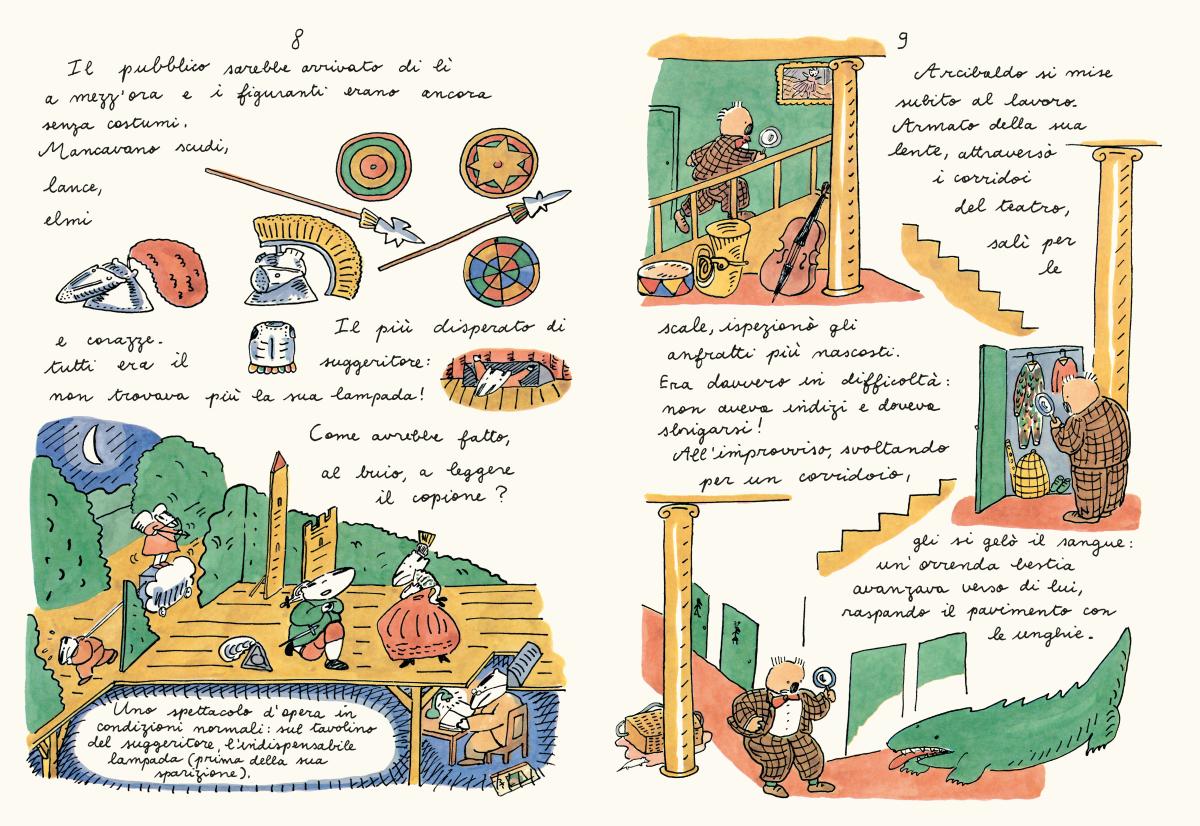 8
Il pubblico sarebbe arrivato di lì
a mezz'ora e i figuranti erano ancora
senza costumi.
Mancavano scudi,
lance,
elmi
e corazze.
Il più disperato di
tutti era il
suggeritore:
non trovava più la sua lampada!
Come avrebbe fatto,
al buio, a leggere
il copione?
Uno spettacolo d'opera in
condizioni normali: sul tavolino
del suggeritore, l'indispensabile
lampada (prima della sua
sparizione).
9
Arcibaldo si mise
subito al lavoro.
Armato della sua
lente, attraversò
i corridoi
del teatro,
salì per
le
scale, ispezionò gli
anfratti più nascosti.
Era davvero in difficoltà:
non aveva indizi e doveva
sbrigarsi!
All'improvviso, svoltando
per un corridoio,
gli si gelò il sangue:
un'orrenda bestia
avanzava verso di lui,
raspando il pavimento con
le unghie.